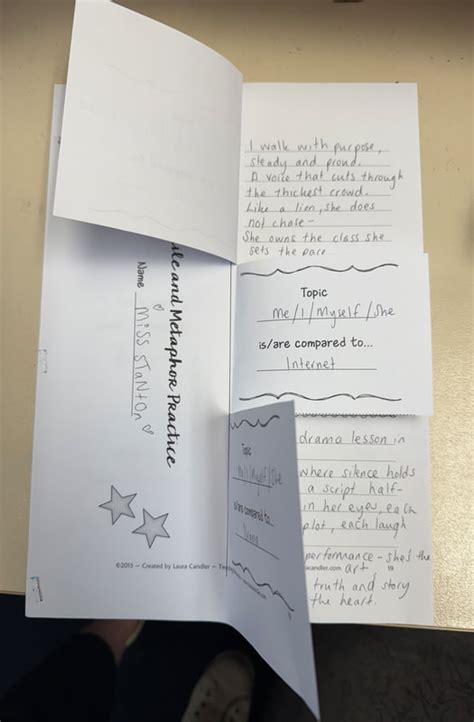 I walk with purpose,
steady and proud.
A voice that cuts through
the thickest crowd.
Like a lion, she does
not chase -
She owns the class she
sets the pace
ile and Metaphor Practice
Name Miss Stanton
©2013 ~ Created by Laura Candler ~
Topic
Me/I/Myself/She
is/are compared to...
Internet
Topic
Me/I/Myself/She
is/are compared to...
drama lesson in
where silence holds
a script half-
in her eyes, each
plot, each laugh
performance - she's the
art
truth and story
the heart.